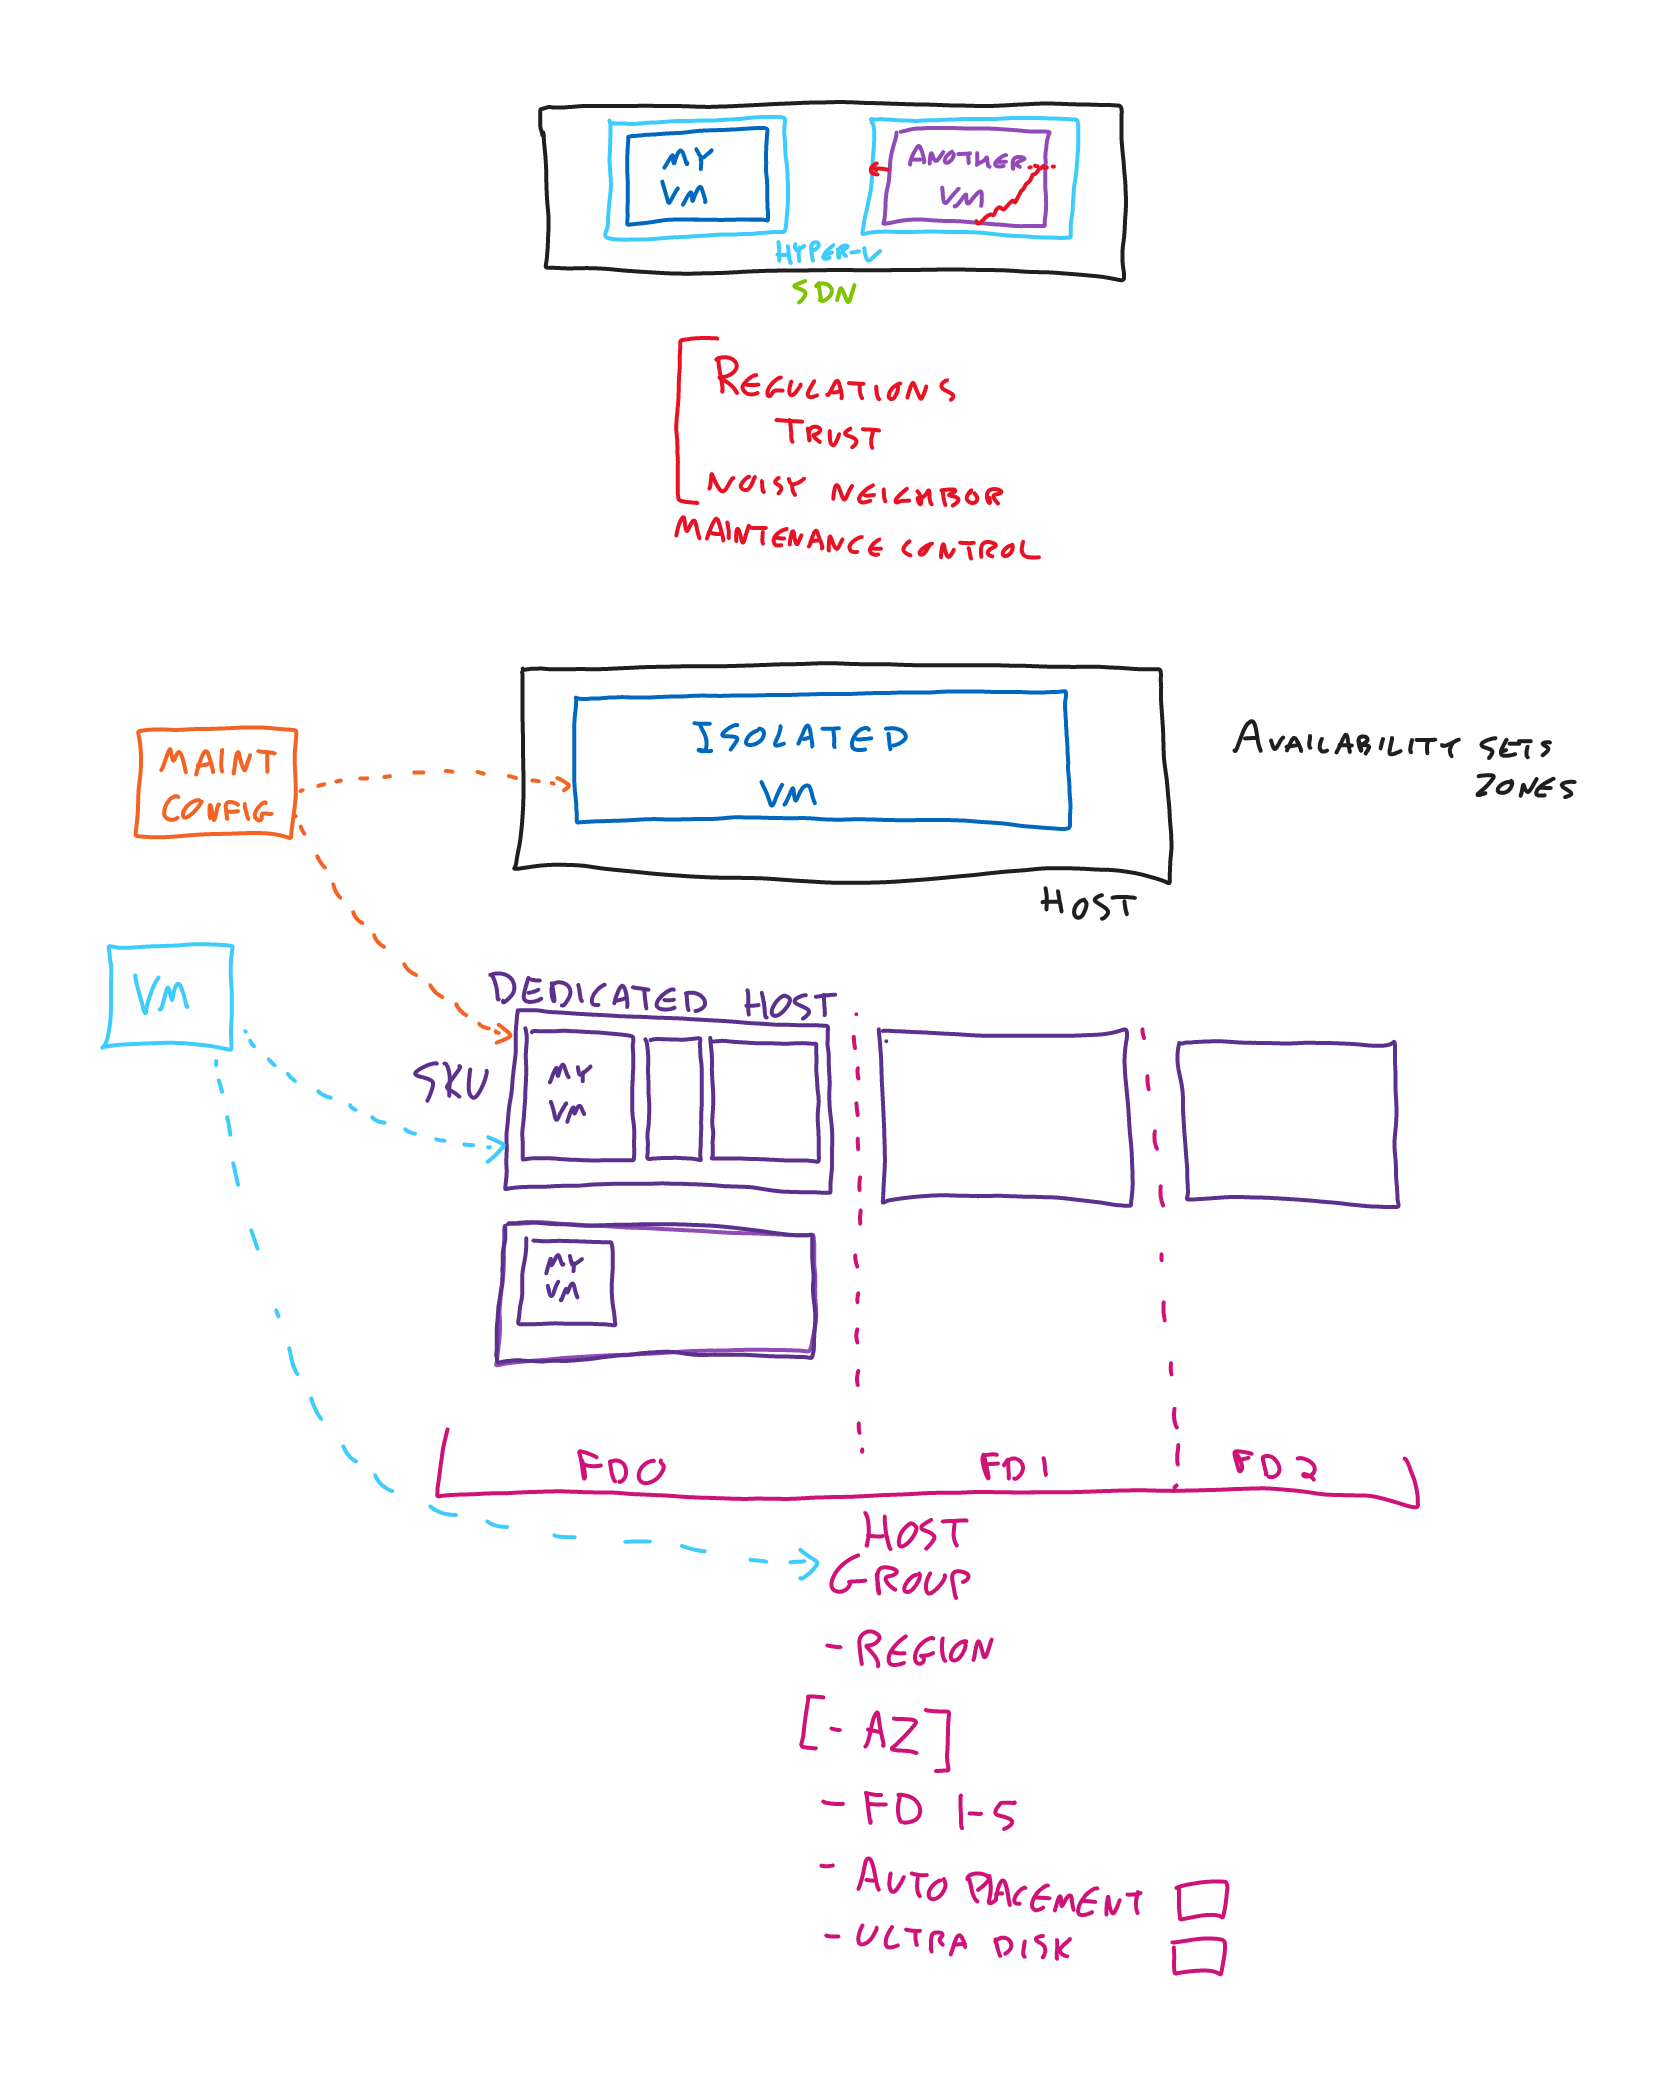 MY
VM
ANOTHER
VM
HYPER-V
SDN
REGULATIONS
TRUST
NOISY NEIGHBOR
MAINTENANCE CONTROL
MAINT
CONFIG
ISOLATED
VM
AVAILABILITY SETS
ZONES
HOST
VM
DEDICATED HOST
SKU
MY
VM
MY
VM
FD0
FD1
FD2
HOST
GROUP
- REGION
[- AZ]
- FD 1-5
- AUTO PLACEMENT
- ULTRA DISK